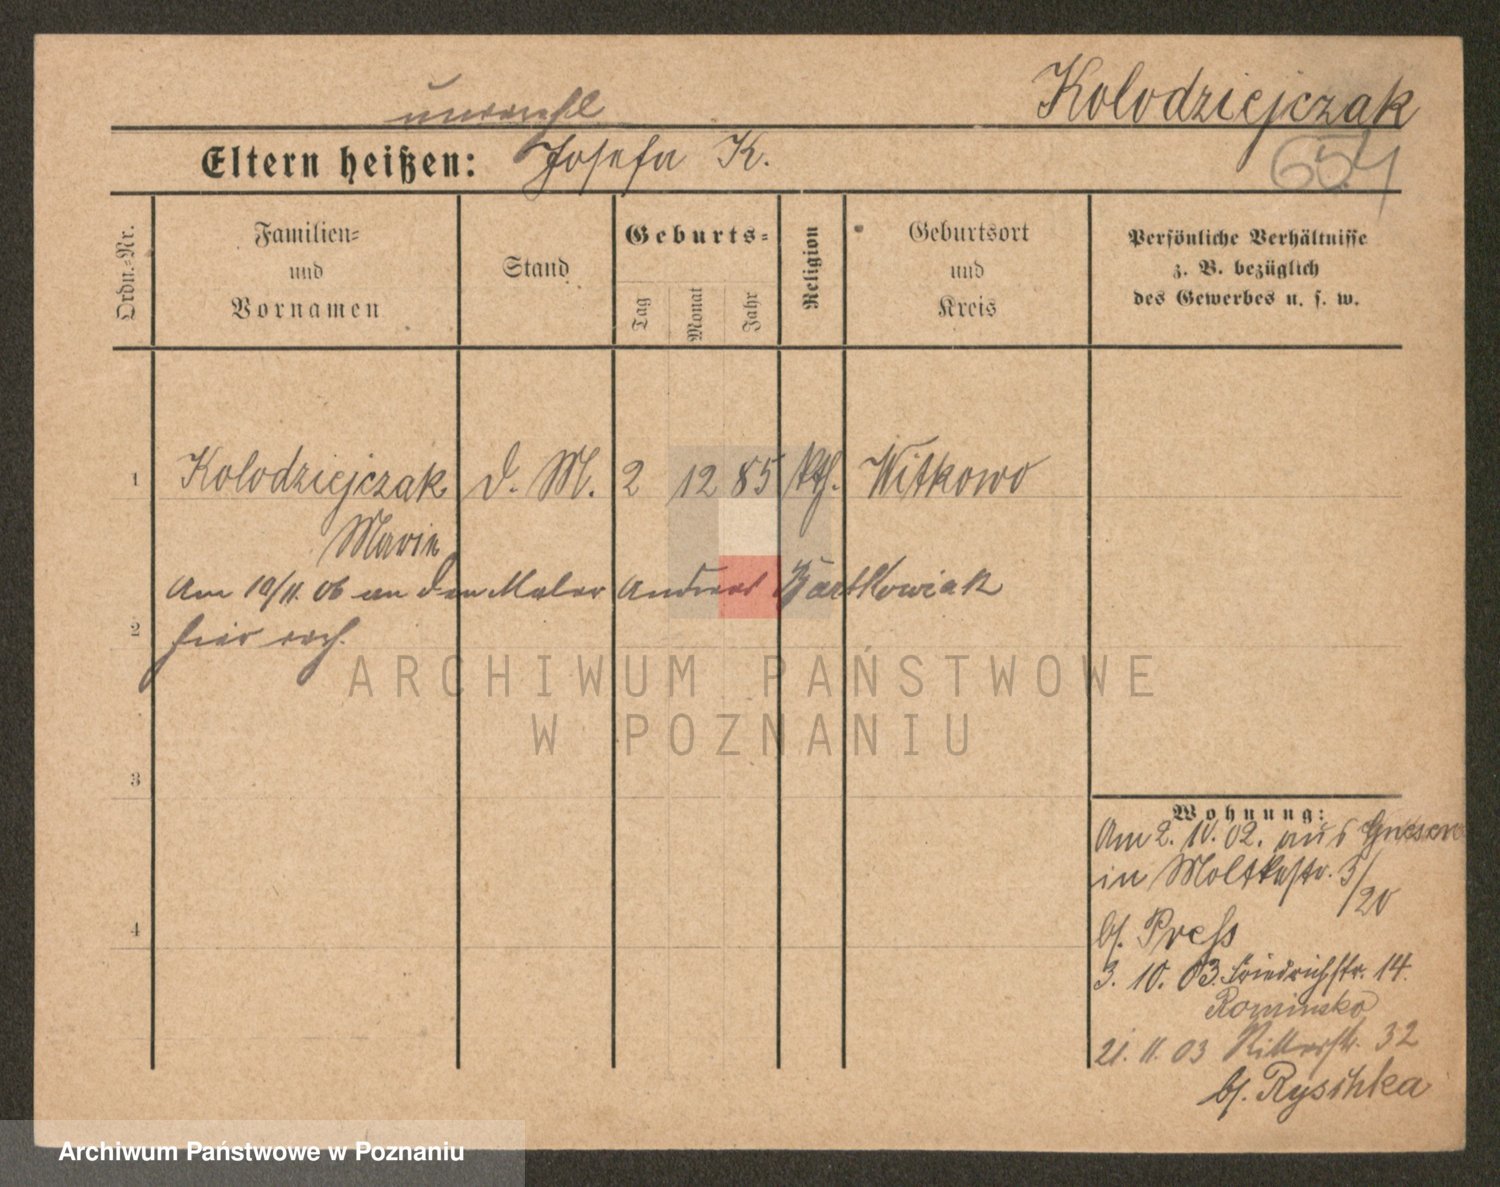 Kolodziejczak
unverehl
654
Eltern heißen: Josefa K.
Ordn.-Nr.
Familien-
und
Vornamen
Stand
Geburts-
Tag
Monat
Jahr
Religion
Geburtsort
und
Kreis
Persönliche Verhältnisse
z. B. bezüglich
des Gewerbes u. s. w.
1 Kolodziejczak d. M. 2 12 85 kth. Witkowo
Marie
Am 10/11. 06 an den Maler Andreas Bartkowiak
2 hier verh.
3
4
Wohnung:
Am 2. 10. 02. aus Gnesen
in Moltkestr. 3/
20
bj. Preß
3. 10. 03. Friedrichstr. 14.
Rominska
21. 11. 03 Ritterstr. 32
bj. Rysihka
ARCHIWUM PAŃSTWOWE
W POZNANIU
Archiwum Państwowe w Poznaniu